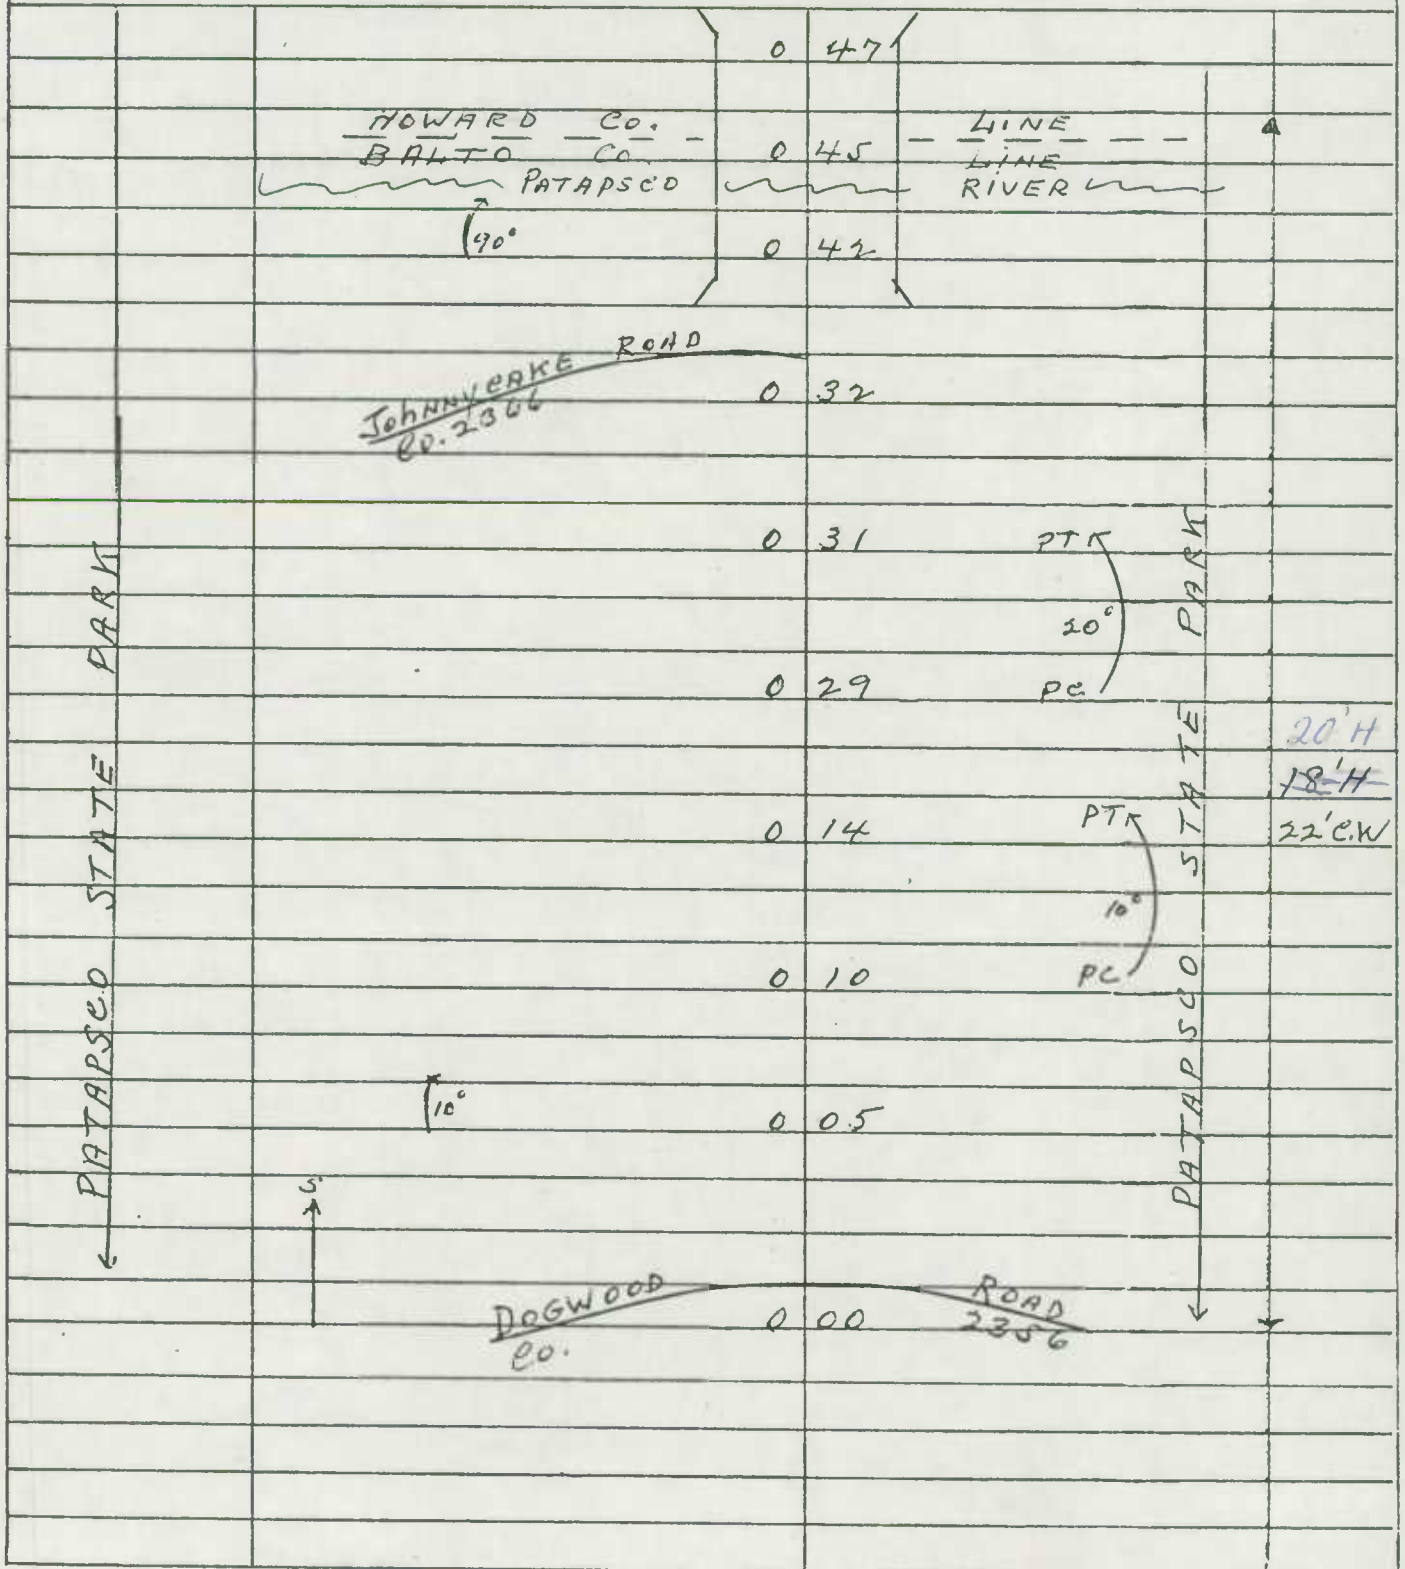 0 47
HOWARD CO. LINE
BALTO CO. 0 45 LINE
PATAPSCO RIVER
90° 0 42
JOHNNYCAKE ROAD
CO. 2366
0 32
0 31 PT
20°
0 29 PC
20' H
18' H
0 14 PT 22' C.W
10°
0 10 PC
10° 0 05
S
DOGWOOD ROAD
CO. 0 00 2356
PATAPSCO STATE PARK
PATAPSCO STATE PARK